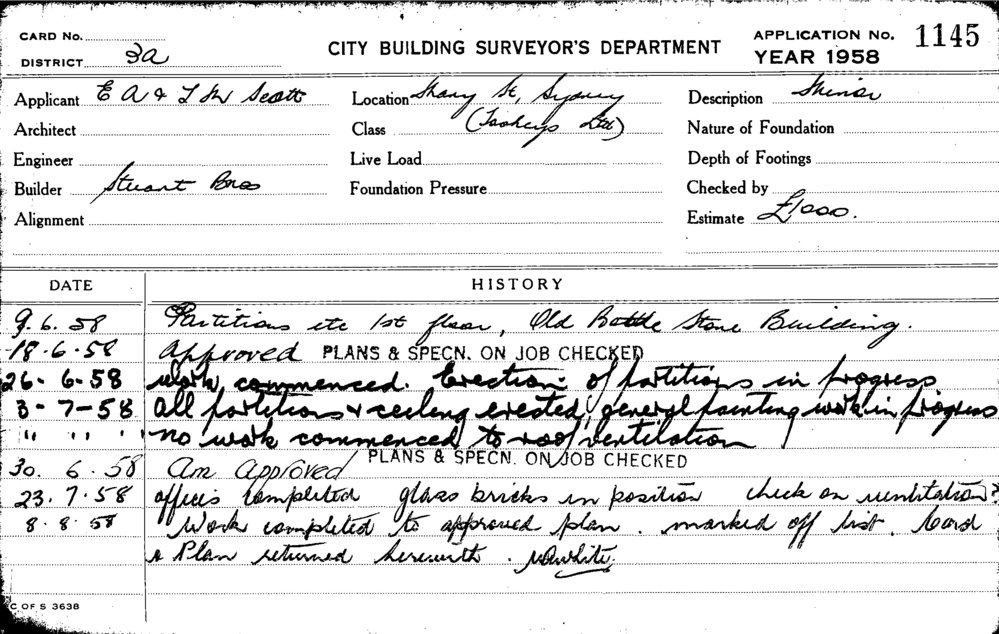 CARD No.
DISTRICT 3a
CITY BUILDING SURVEYOR'S DEPARTMENT
APPLICATION No. 1145
YEAR 1958
Applicant E A & T M Scott
Location Mary St, Sydney
Description Minor
Architect
Class (Tooheys Ltd)
Nature of Foundation
Engineer
Live Load
Depth of Footings
Builder Stuart Bros
Foundation Pressure
Checked by
Alignment
Estimate £1000.
DATE
HISTORY
9.6.58 Partitions etc 1st floor, Old Bottle Store Building.
18.6.58 Approved PLANS & SPECN. ON JOB CHECKED
26-6-58 work commenced. Erection of partitions in progress
3-7-58 all partitions & ceiling erected, general painting work in progress
" " " no work commenced to roof ventilation
30.6.58 Am Approved PLANS & SPECN. ON JOB CHECKED
23.7.58 offices completed glass bricks in position check on ventilation?
8.8.58 Work completed to approved plan. marked off list. Card
& Plan returned herewith.
C OF S 3638